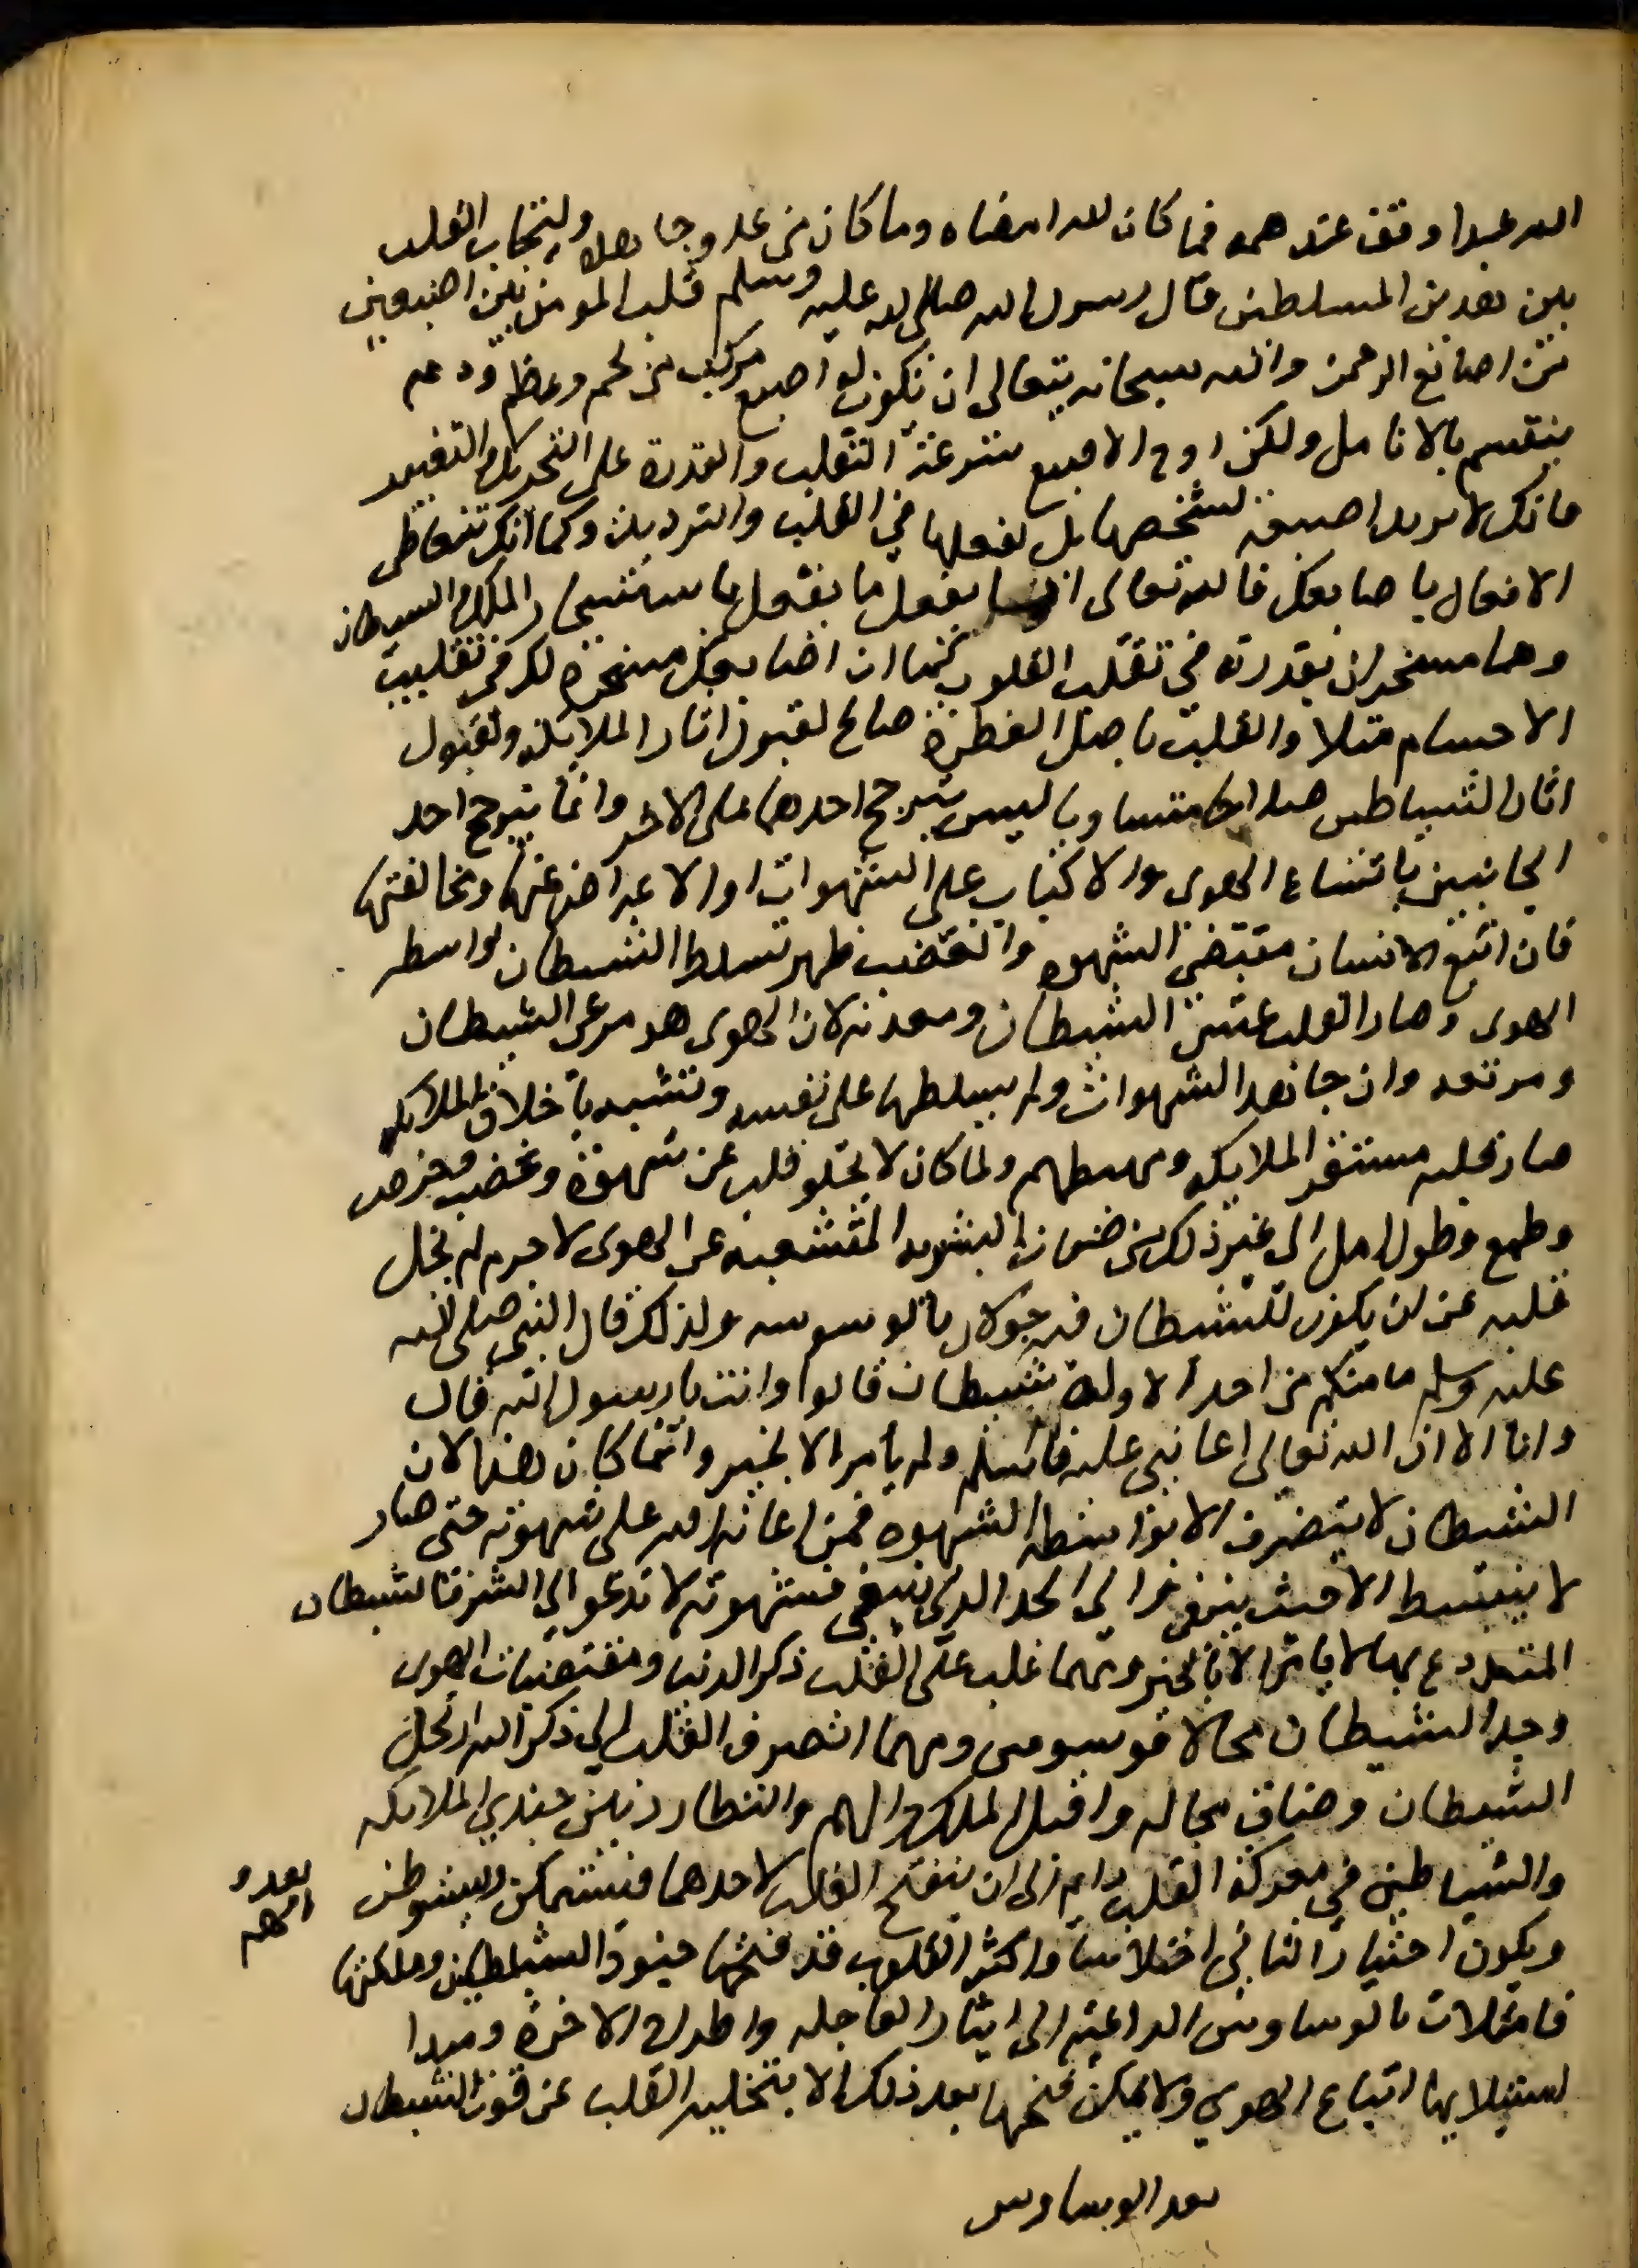 الله عبدا وقف عند همه فما كان لله امضاه وما كان من عدوه جاهده ولتجاذب القلب
بين هذين المسلطين قال رسول الله صلى الله عليه وسلم قلب المومن بين اصبعين
من اصابع الرحمن والله سبحانه يتعالى ان تكون له اصبع مركب من لحم وعظم ودم
ينقسم بالانامل ولكن روح الاصبع سرعة التقلب والقدرة على التحريك والتغيير
فانك لا تريد اصبعه لشخصها بل لفعلها في القلب والترديد وكما انك تتعاطى
الافعال باصابعك فالله تعالى انما يفعل ما يفعل باستسخار الملك والشيطان
وهما مسخران بقدرته في تقلب القلوب كما ان اصابعك مسخرة لك في تقليب
الاجسام مثلا والقلب باصل الفطرة صالح لقبول اثار الملايكة ولقبول
اثار الشياطين صلاحا متساويا ليس يترجح احدهما على الاخر وانما يترجح احد
الجانبين باتباع الهوى والاكباب على الشهوات او الاعراض عنها ومخالفتها
فان اتبع الانسان مقتضى الشهوة والغضب ظهر تسلط الشيطان بواسطة
الهوى وصار القلب عش الشيطان ومعدنه لان الهوى هو مرعى الشيطان
ومرتعه وان جاهد الشهوات ولم يسلطها على نفسه وتشبه باخلاق الملايكة
صار قلبه مستقر الملايكة ومهبطهم ولما كان لا يخلو قلب عن شهوة وغضب وحرص
وطمع وطول امل الى غير ذلك من صفات البشرية المتشعبة عن الهوى لا جرم لم يخل
قلبه عن ان يكون للشيطان فيه جولان بالوسوسه ولذلك قال النبي صلى الله
عليه وسلم ما منكم من احد الا وله شيطان قالوا وانت يا رسول الله قال
وانا الا ان الله تعالى اعانني عليه فاسلم ولم يأمر الا بخير وانما كان هذا لان
الشيطان لا يتصرف الا بواسطة الشهوة فمن اعانه الله على شهوته حتى صار
لا ينبسط الا حيث ينبغي والى الحد الذي ينبغي فشهوته لا تدعو الى الشر فالشيطان
المتدرع بها لا يامر الا بالخير ومهما غلب على القلب ذكر الدنيا ومقتضيات الهوى
وجد الشيطان مجالا فوسوس ومهما انصرف القلب الى ذكر الله ارتحل
الشيطان وضاق مجاله واقبل الملك والهم والتطارد بين جندي الملايكة
والشياطين في معركة القلب دايم الى ان ينفتح القلب لاحدهما فيتمكن ويستوطن
ويكون اجتياز الثاني اختلاسا واكثر القلوب قد فتحها جنود الشياطين وملكتها
فامتلات بالوساوس الداعية الى ايثار العاجله واطراح الاخرة ومبدا
استيلايها اتباع الهوى ولا يمكن فتحها بعد ذلك الا بتخلية القلب عن قوت الشيطان